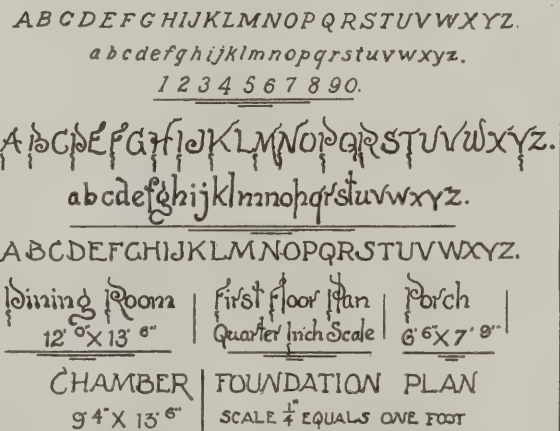 ABCDEFGHIJKLMNOPQRSTUVWXYZ.
abcdefghijklmnopqrstuvwxyz.
1234567890.
ABCDEFGHIJKLMNOPQRSTUVWXYZ.
abcdefghijklmnopqrstuvwxyz.
ABCDEFGHIJKLMNOPQRSTUVWXYZ.
Dining Room
12' 0" X 13' 6"
First Floor Plan
Quarter Inch Scale
Porch
6' 6" X 7' 9"
CHAMBER
9' 4" X 13' 6"
FOUNDATION PLAN
SCALE 1/4" EQUALS ONE FOOT